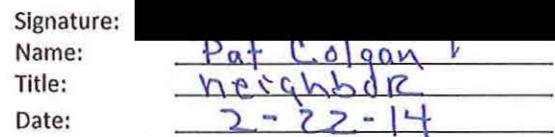 Signature:
Name: Pat Colgan
Title: neighboR
Date: 2-22-14